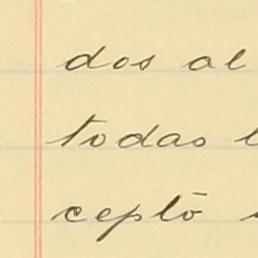 dos al
todas l
ceptō